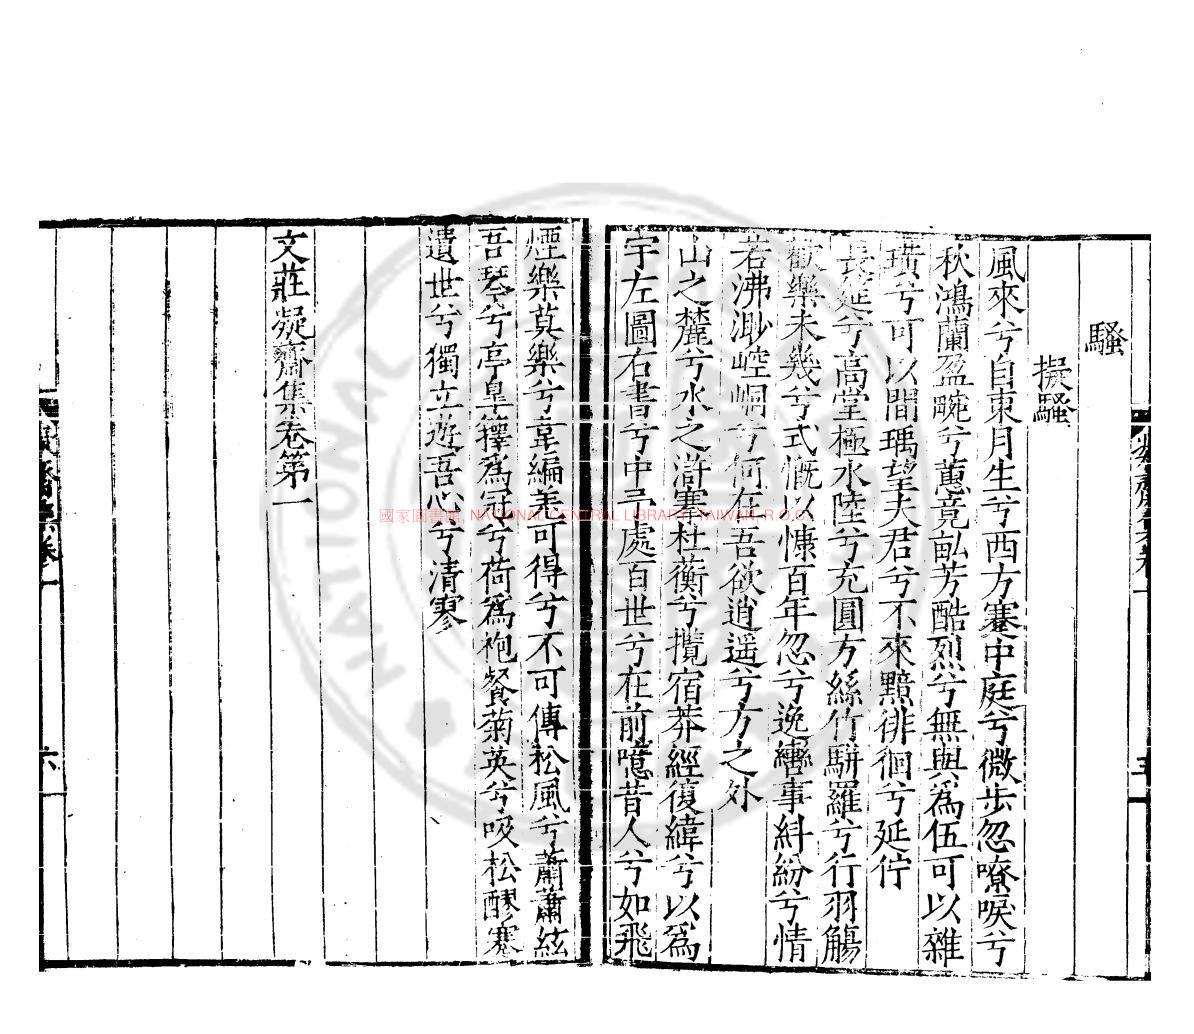 騷
擬騷
風來兮自東月生兮西方蹇中庭兮微步忽嘹唳兮
秋鴻蘭盈畹兮蕙竟畝芳酷烈兮無與為伍可以雜
璜兮可以間瑀望夫君兮不來黯徘徊兮延佇
長筵兮高堂極水陸兮充圓方絲竹駢羅兮行羽觴
歡樂未幾兮式慨以慷百年忽兮逸轡事糾紛兮情
若沸渺崆峒兮何在吾欲逍遥兮方之外
山之麓兮水之滸搴杜蘅兮攬宿莽經復緯兮以為
宇左圖右書兮中予處百世兮在前噫昔人兮如飛
煙樂莫樂兮韋編羌可得兮不可傳松風兮蕭蕭絃
吾琴兮亭皐籜為冠兮荷為袍餐菊英兮吸松醪蹇
遺世兮獨立遊吾心兮清寥
文莊凝齋集卷第一
六
國家圖書館, NATIONAL CENTRAL LIBRARY, TAIWAN, R.O.C.